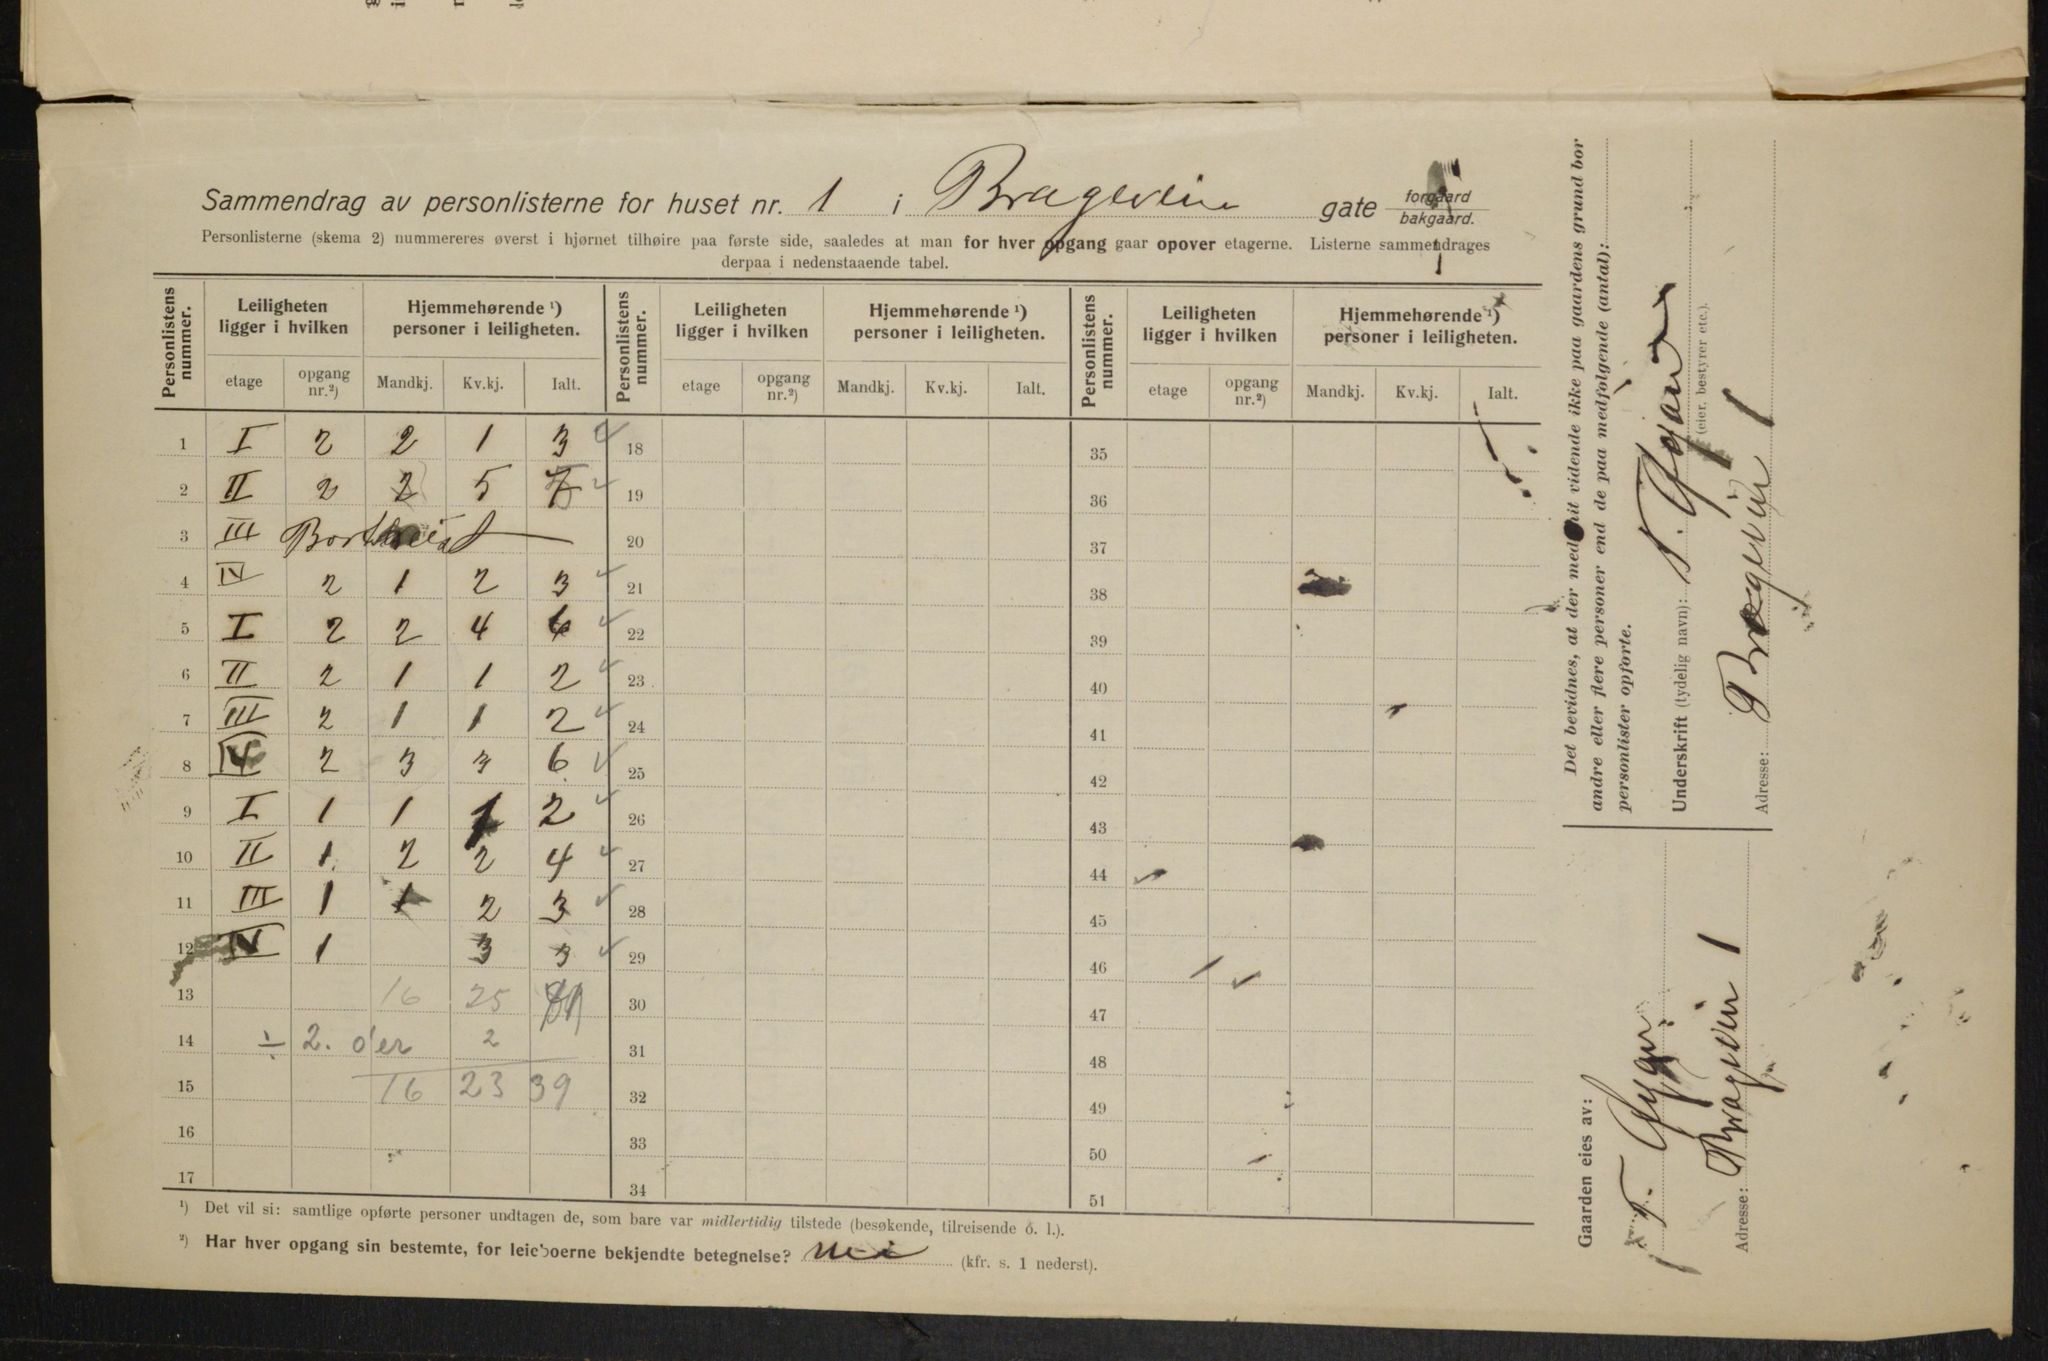 Sammendrag av personlisterne for huset nr. 1 i Brageveien gate forgaard bakgaard.
Personlisterne (skema 2) nummereres øverst i hjørnet tilhøire paa første side, saaledes at man for hver opgang gaar opover etagerne. Listerne sammendrages
derpaa i nedenstaaende tabel.
Personlistens nummer. Leiligheten ligger i hvilken Hjemmehørende ¹) personer i leiligheten. Personlistens nummer. Leiligheten ligger i hvilken Hjemmehørende ¹) personer i leiligheten. Personlistens nummer. Leiligheten ligger i hvilken Hjemmehørende ¹) personer i leiligheten.
etage opgang nr.²) Mandkj. Kv.kj. Ialt. etage opgang nr.²) Mandkj. Kv.kj. Ialt. etage opgang nr.²) Mandkj. Kv.kj. Ialt.
1 I 2 2 1 3 18 35
2 II 2 2 5 7 19 36
3 III Bortreist 20 37
4 IV 2 1 2 3 21 38
5 I 2 2 4 6 22 39
6 II 2 1 1 2 23 40
7 III 2 1 1 2 24 41
8 IV 2 3 3 6 25 42
9 I 1 1 1 2 26 43
10 II 1 2 2 4 27 44
11 III 1 1 2 3 28 45
12 IV 1 3 3 29 46
13 16 25 30 47
14 ÷ 2. o'er 2 31 48
15 16 23 39 32 49
16 33 50
17 34 51
¹) Det vil si: samtlige opførte personer undtagen de, som bare var midlertidig tilstede (besøkende, tilreisende o. l.).
²) Har hver opgang sin bestemte, for leieboerne bekjendte betegnelse? Nei (kfr. s. 1 nederst).
Det bevidnes, at der med mit vidende ikke paa gaardens grund bor
andre eller flere personer end de paa medfølgende (antal):
personlister opførte.
Underskrift (tydelig navn):
(eier, bestyrer etc.).
Adresse: Brageveien 1
Gaarden eies av:
Adresse: Brageveien 1